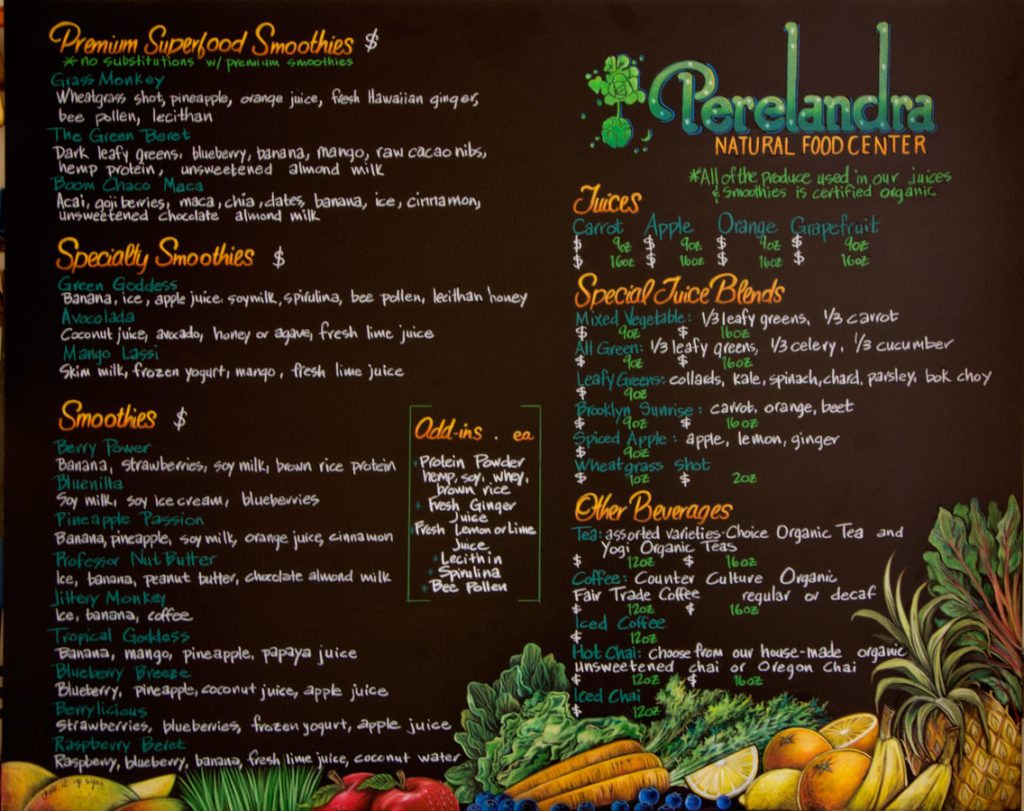 Premium Superfood Smoothies $
*no substitutions w/ premium smoothies
Grass Monkey
Wheatgrass shot, pineapple, orange juice, fresh Hawaiian ginger,
bee pollen, lecithan
The Green Beret
Dark leafy greens, blueberry, banana, mango, raw cacao nibs,
hemp protein, unsweetened almond milk
Boom Chaco Maca
Acai, goji berries, maca, chia, dates, banana, ice, cinnamon,
unsweetened chocolate almond milk
Specialty Smoothies $
Green Goddess
Banana, ice, apple juice, soymilk, spirulina, bee pollen, lecithan honey
Avocolada
Coconut juice, avocado, honey or agave, fresh lime juice
Mango Lassi
Skim milk, frozen yogurt, mango, fresh lime juice
Smoothies $
Berry Power
Banana, strawberries, soy milk, brown rice protein
Bluenilla
Soy milk, soy ice cream, blueberries
Pineapple Passion
Banana, pineapple, soy milk, orange juice, cinnamon
Professor Nut Butter
Ice, banana, peanut butter, chocolate almond milk
Jittery Monkey
Ice, banana, coffee
Tropical Goddess
Banana, mango, pineapple, papaya juice
Blueberry Breeze
Blueberry, pineapple, coconut juice, apple juice
Berrylicious
Strawberries, blueberries, frozen yogurt, apple juice
Raspberry Beret
Raspberry, blueberry, banana, fresh lime juice, coconut water
Add-ins . ea
Protein Powder
hemp, soy, whey,
brown rice
Fresh Ginger
Juice
Fresh Lemon or Lime
Juice
Lecithin
Spirulina
Bee Pollen
Perelandra
NATURAL FOOD CENTER
*All of the produce used in our juices
& smoothies is certified organic
Juices
Carrot Apple Orange Grapefruit
$ 9oz $ 9oz $ 9oz $ 9oz
$ 16oz $ 16oz $ 16oz $ 16oz
Special Juice Blends
Mixed Vegetable: 1/3 leafy greens, 1/3 carrot
$ 9oz $ 16oz
All Green: 1/3 leafy greens, 1/3 celery, 1/3 cucumber
$ 9oz $ 16oz
Leafy Greens: collards, kale, spinach, chard, parsley, bok choy
$ 9oz
Brooklyn Sunrise: carrot, orange, beet
$ 9oz $ 16oz
Spiced Apple: apple, lemon, ginger
$ 9oz
Wheatgrass Shot
$ 1oz $ 2oz
Other Beverages
Tea: assorted varieties-Choice Organic Tea and
Yogi Organic Teas
$ 12oz $ 16oz
Coffee: Counter Culture Organic
Fair Trade Coffee regular or decaf
$ 12oz $ 16oz
Iced Coffee
$ 12oz
Hot Chai: choose from our house-made organic
unsweetened chai or Oregon Chai
$ 12oz $ 16oz
Iced Chai
$ 12oz